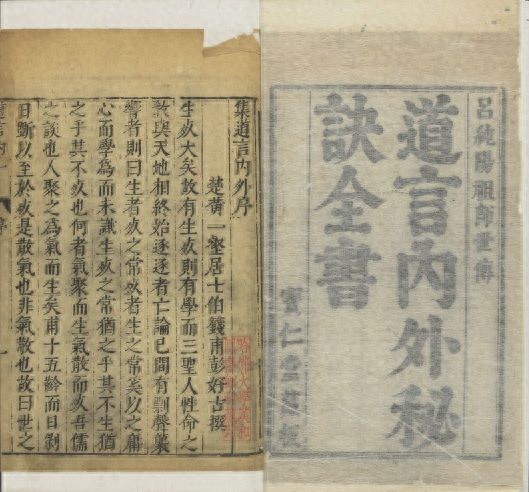 呂純陽祖師世傳
道言內外秘
訣全書
寶仁堂
集道言內外序
楚黃一壑居士伯籛甫彭好古撰
哈佛大學漢和
生死大矣故有生死則有學而三聖人性命之
教與天地相終始逐逐者亡論已間有剽聲襲
響者則曰生者死之常死者生之常奚以之庸
心而學為而未識生死之常猶之乎其不生猶
之乎其不死也何者氣聚而生氣散而死吾儒
之談也人聚之為氣而生矣甫十五齡而日剝
日斲以至於死是散氣也非氣散也故曰世之
序